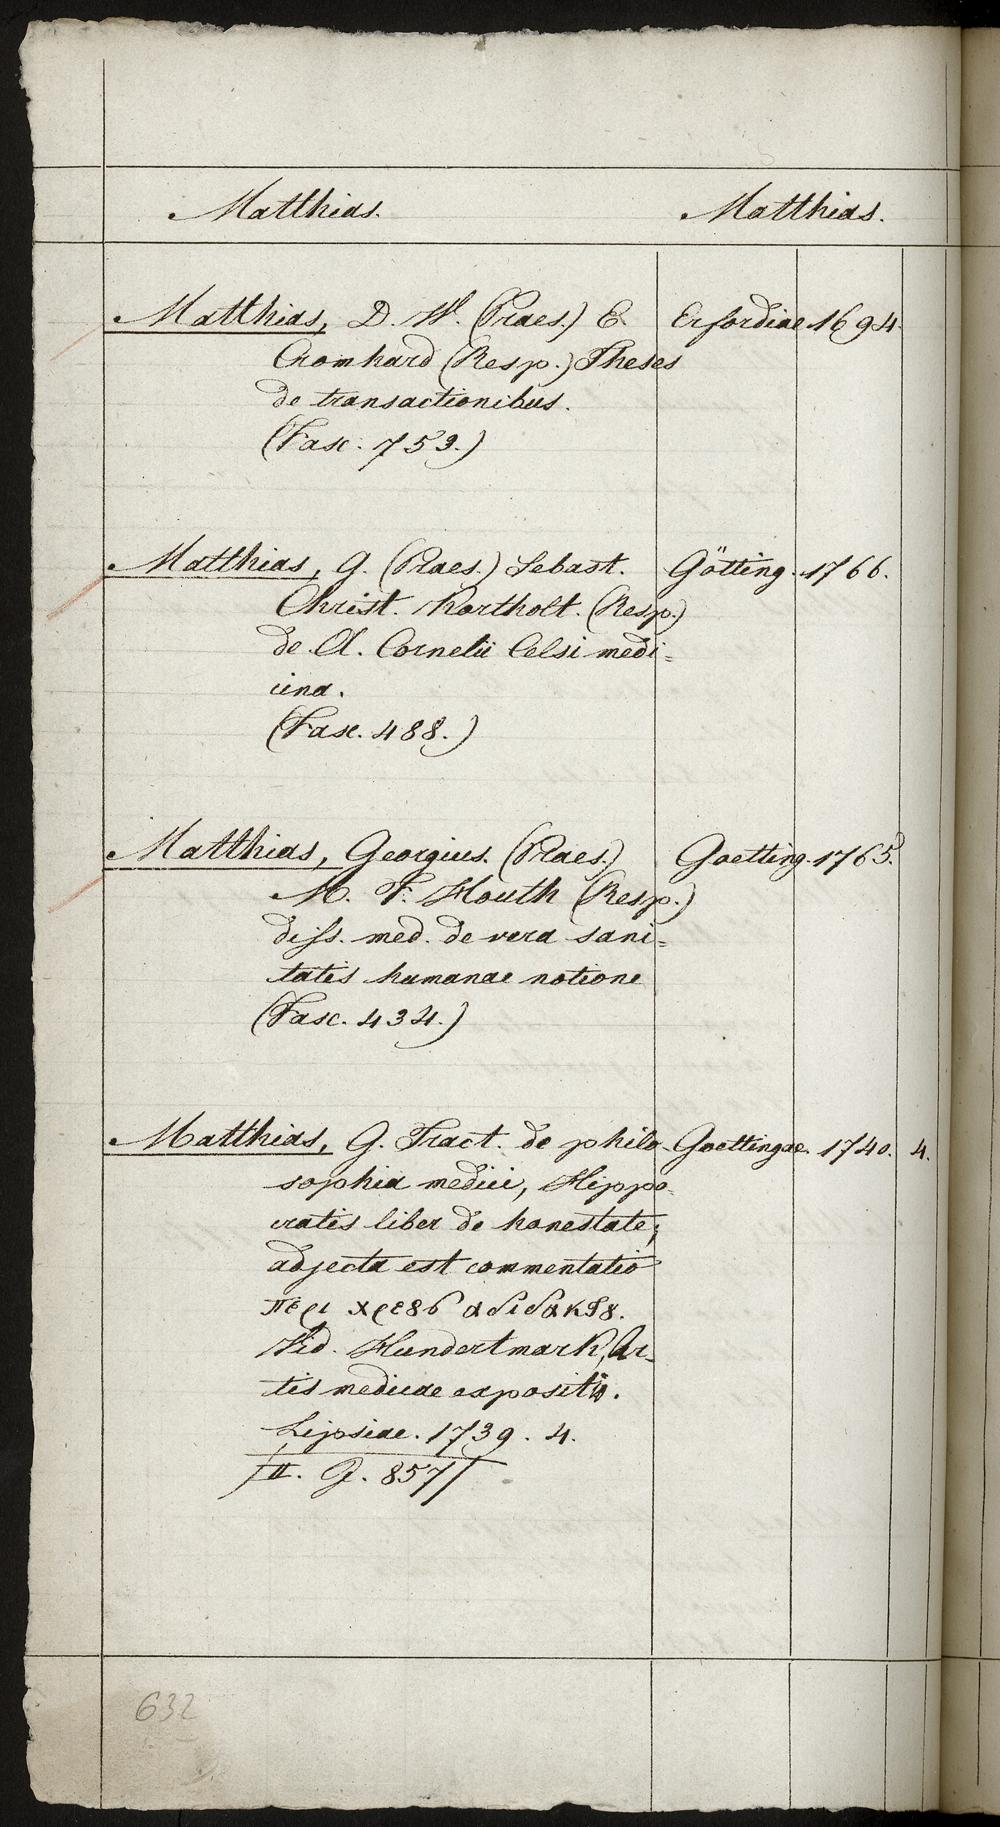 Matthias. Matthias.
Matthias, D. W. (Praes.) E. Erfordiae 1694.
Cromhard (Resp.) Theses
de transactionibus.
(Fasc. 753.)
Matthias, G. (Praes.) Sebast. Götting. 1766.
Christ. Kortholt. (Resp.)
de A. Cornelii Celsi medi=
cina.
(Fasc. 488.)
Matthias, Georgius. (Praes.) Goetting. 1765.
M. F. Houth (Resp.)
diss. med. de vera sani=
tatis humanae notione
(Fasc. 434.)
Matthias, G. Tract. de philo- Goettingae. 1740. 4.
sophia medici, Hippo-
cratis liber de honestate;
adjecta est commentatio
περι χρεȣς αδιδακτȣ.
Vid. Hundertmark, Ar-
tis medicae expositio.
Lipsiae. 1739. 4.
/II. G. 857/
632